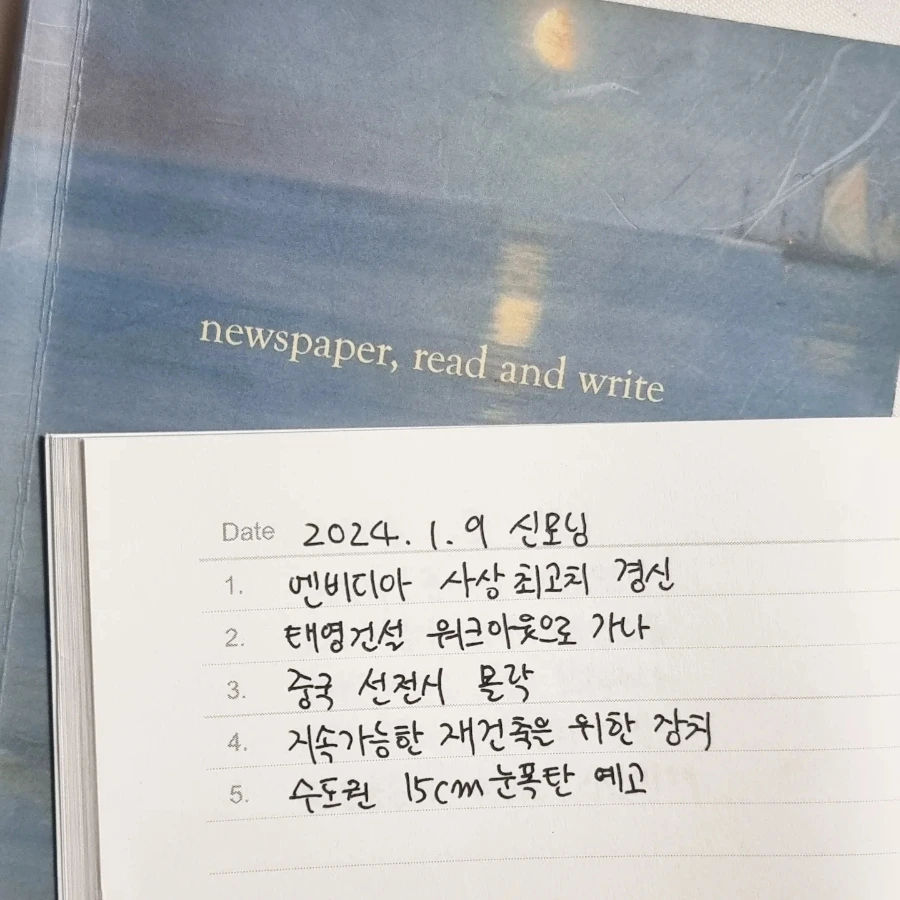 newspaper, read and write
Date 2024. 1. 9 신모닝
1. 엔비디아 사상 최고치 경신
2. 태영건설 워크아웃으로 가나
3. 중국 선전시 몰락
4. 지속가능한 재건축은 위한 장치
5. 수도권 15cm 눈폭탄 예고